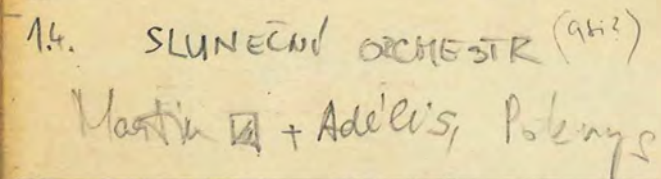 1.4. SLUNEČNÍ ORCHESTR (asi?)
Martin + Adélis, Poknys